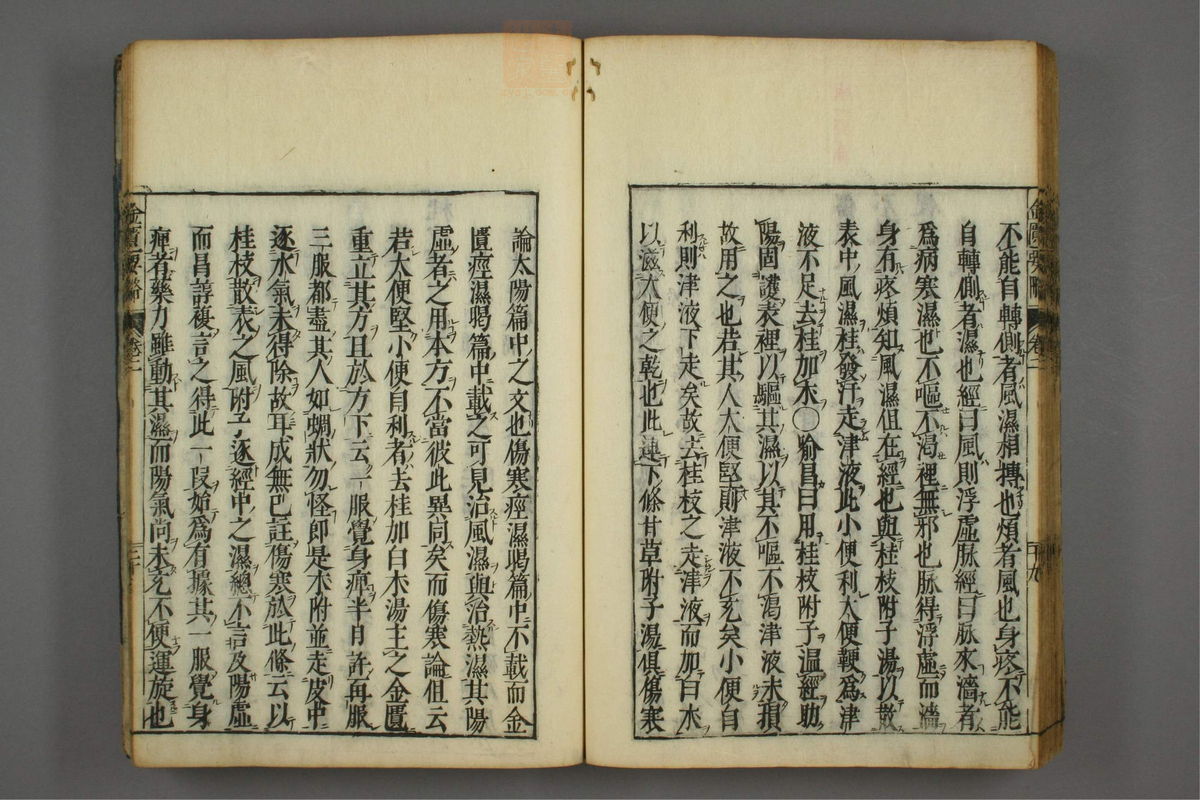 不能自轉側者風濕相搏也煩者風也身疼不能
自轉側者濕也經曰風則浮虛脉經曰脉來濇者
爲病寒濕也不嘔不渴裡無邪也脉得浮虛而濇
身有疼煩知風濕但在經也與桂枝附子湯以散
表中風濕桂發汗走津液此小便利大便鞕爲津
液不足去桂加朮〇喻昌曰用桂枝附子溫經助
陽固護表裡以驅其濕以其不嘔不渴津液未損
故用之也若其人大便堅則津液不充矣小便自
利則津液下走矣故去桂枝之走津液而加白朮
以滋大便之乾也此連下條甘草附子湯俱傷寒
論太陽篇中之文也傷寒痙濕暍篇中不載而金
匱痙濕暍篇中載之可見治風濕與治熱濕其陽
虛者之用本方不當彼此異同矣而傷寒論但云
若大便堅小便自利者去桂加白朮湯主之金匱
重立其方且於方下云一服覺身痺半日許再服
三服都盡其人如蜩狀勿怪即是朮附並走皮中
逐水氣未得除故耳成無已註傷寒於此條云以
桂枝散表之風附子逐經中之濕總不言及陽虛
而昌諄複言之得此一段始爲有據其一服覺身
痺者藥力雖動其濕而陽氣尚未充不便運旋也
金匱要略 卷二 二十九
金匱要略 卷二 三十